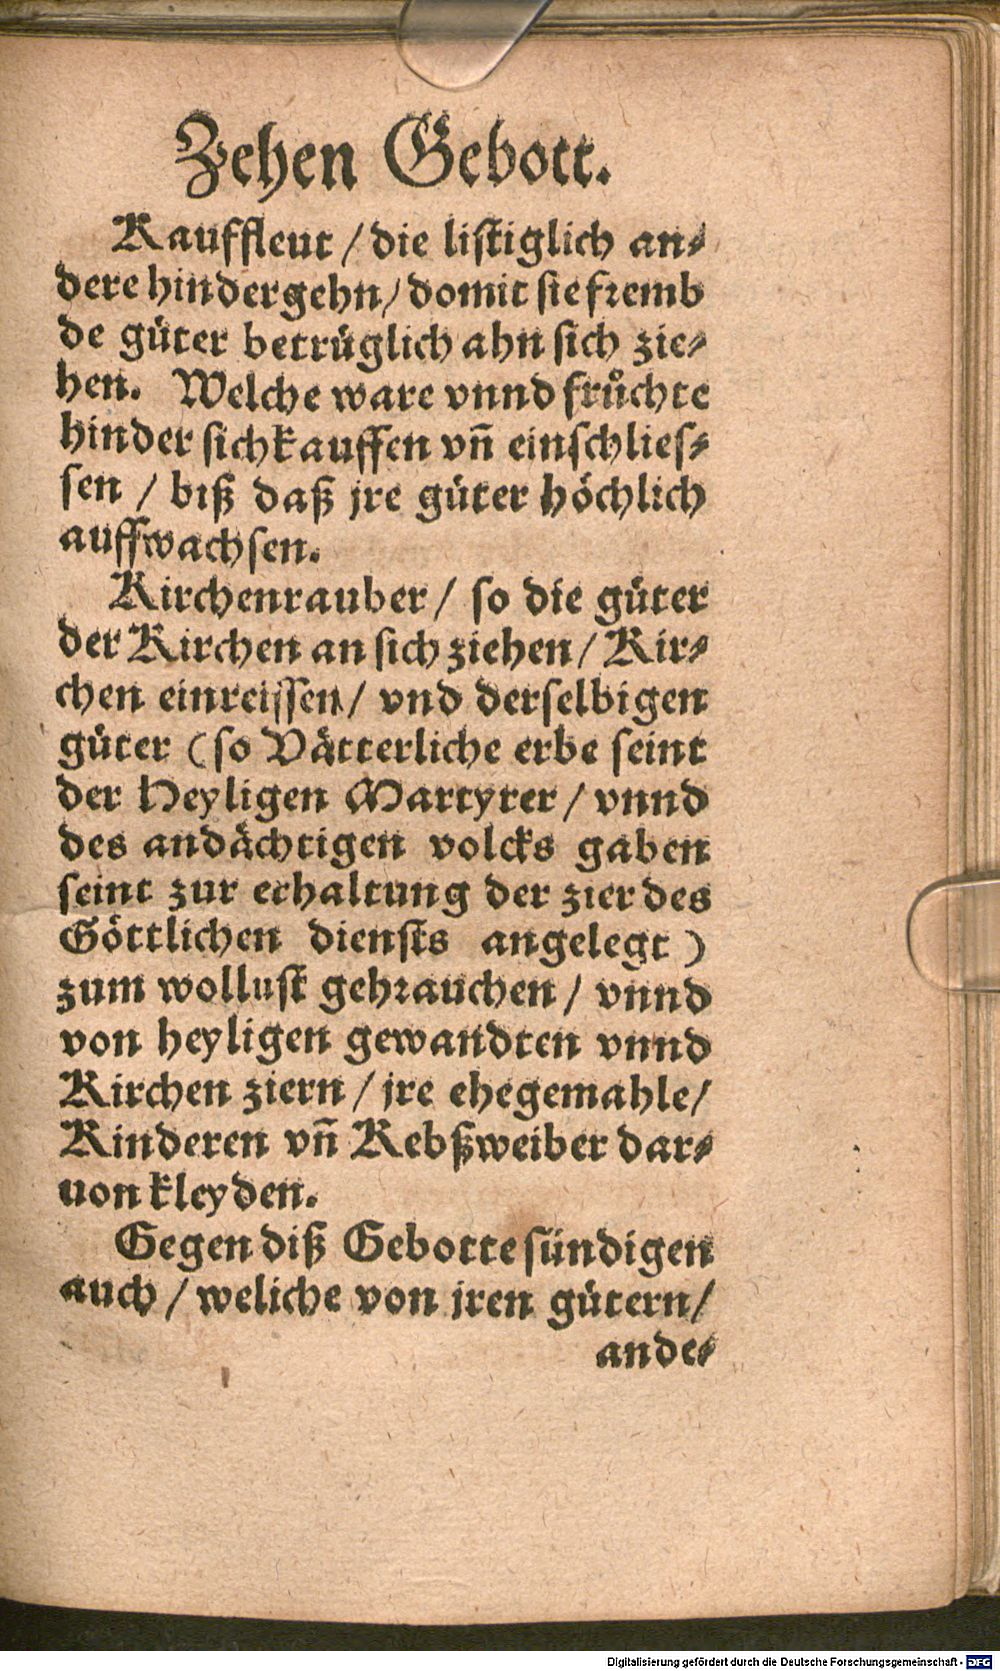 Zehen Gebott.
Kauffleut / die listiglich an⸗
dere hindergehn / domit sie fremb
de güter betrüglich ahn sich zie⸗
hen. Welche ware vnnd fruͤchte
hinder sich kauffen vñ einschlies⸗
sen / biß daß jre güter höchlich
auffwachsen.
Kirchenrauber / so die güter
der Kirchen an sich ziehen / Kir⸗
chen einreissen / vnd derselbigen
güter (so Vätterliche erbe seint
der Heyligen Martyrer / vnnd
des andächtigen volcks gaben
seint zur erhaltung der zier des
Göttlichen diensts angelegt)
zum wollust gehrauchen / vnnd
von heyligen gewandten vnnd
Kirchen ziern / jre ehegemahle /
Kinderen vñ Kebßweiber dar⸗
uon kleyden.
Gegen diß Gebotte sündigen
auch / weliche von jren gütern /
ande⸗
Digitalisierung gefördert durch die Deutsche Forschungsgemeinschaft - DFG